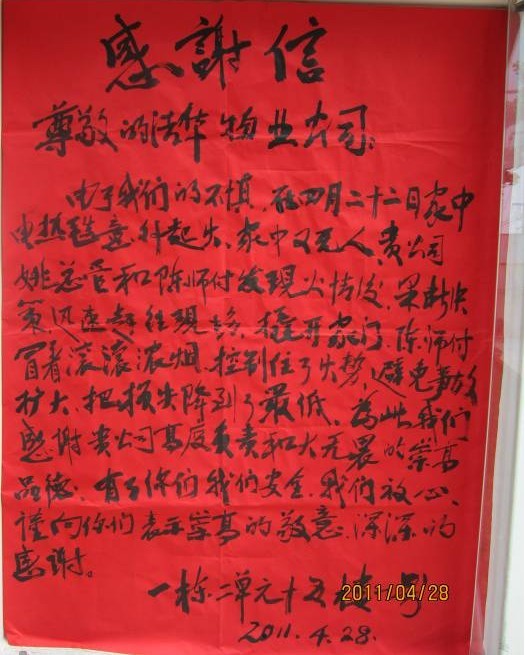 感謝信
尊敬的清华物业公司:
由于我们的不慎,在四月二十二日家中
电热毯意外起火、家中又无人,贵公司
姚总管和陈师付发现火情后,果断决
策迅速赶往现场,撬开家门,陈师付
冒着滚滚浓烟,控制住了火势,避免事故
扩大,把损失降到了最低,为此我们
感谢贵公司高度负责和大无畏的崇高
品德,有了你们我们安全,我们放心、
谨向你们表示崇高的敬意,深深的
感谢。
一栋二单元十五楼
2011.4.28.
2011/04/28